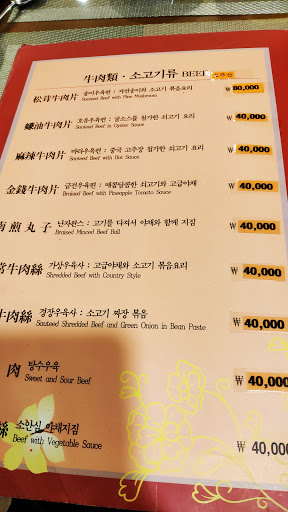 牛肉類 · 소고기류 BEEF
松茸牛肉片
송이우육편 : 자연송이와 소고기 볶음요리
Sauteed Beef with Pine Mushroom
₩ 80,000
蠔油牛肉片
호유우육편 : 굴소스를 첨가한 쇠고기 요리
Sauteed Beef in Oyster Sauce
₩ 40,000
麻辣牛肉片
마라우육편 : 중국 고추장 첨가한 쇠고기 요리
Sauteed Beef with Hot Sauce
₩ 40,000
金錢牛肉片
금전우육편 : 매콤달콤한 쇠고기와 고급야채
Braised Beef with Pineapple Tomato Sauce
₩ 40,000
南煎丸子
난자완스 : 고기를 다져서 야채와 함께 지짐
Braised Minced Beef Ball
₩ 40,000
常牛肉絲
가상우육사 : 고급야채와 소고기 볶음요리
Shredded Beef with Country Style
₩ 40,000
牛肉絲
경장우육사 : 소고기 짜장 볶음
Sauteed Shredded Beef and Green Onion in Bean Paste
₩ 40,000
肉
탕수우육
Sweet and Sour Beef
₩ 40,000
絲
소안심 야채지짐
Beef with Vegetable Sauce
₩ 40,000